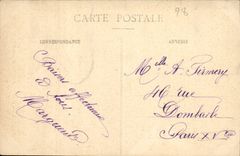 98
CARTE POSTALE
CORRESPONDANCE
ADRESSE
Baisers affectueux
à tous
Marguerite
Mlle A. Fermery
46 rue
Dombasle
Paris XVe